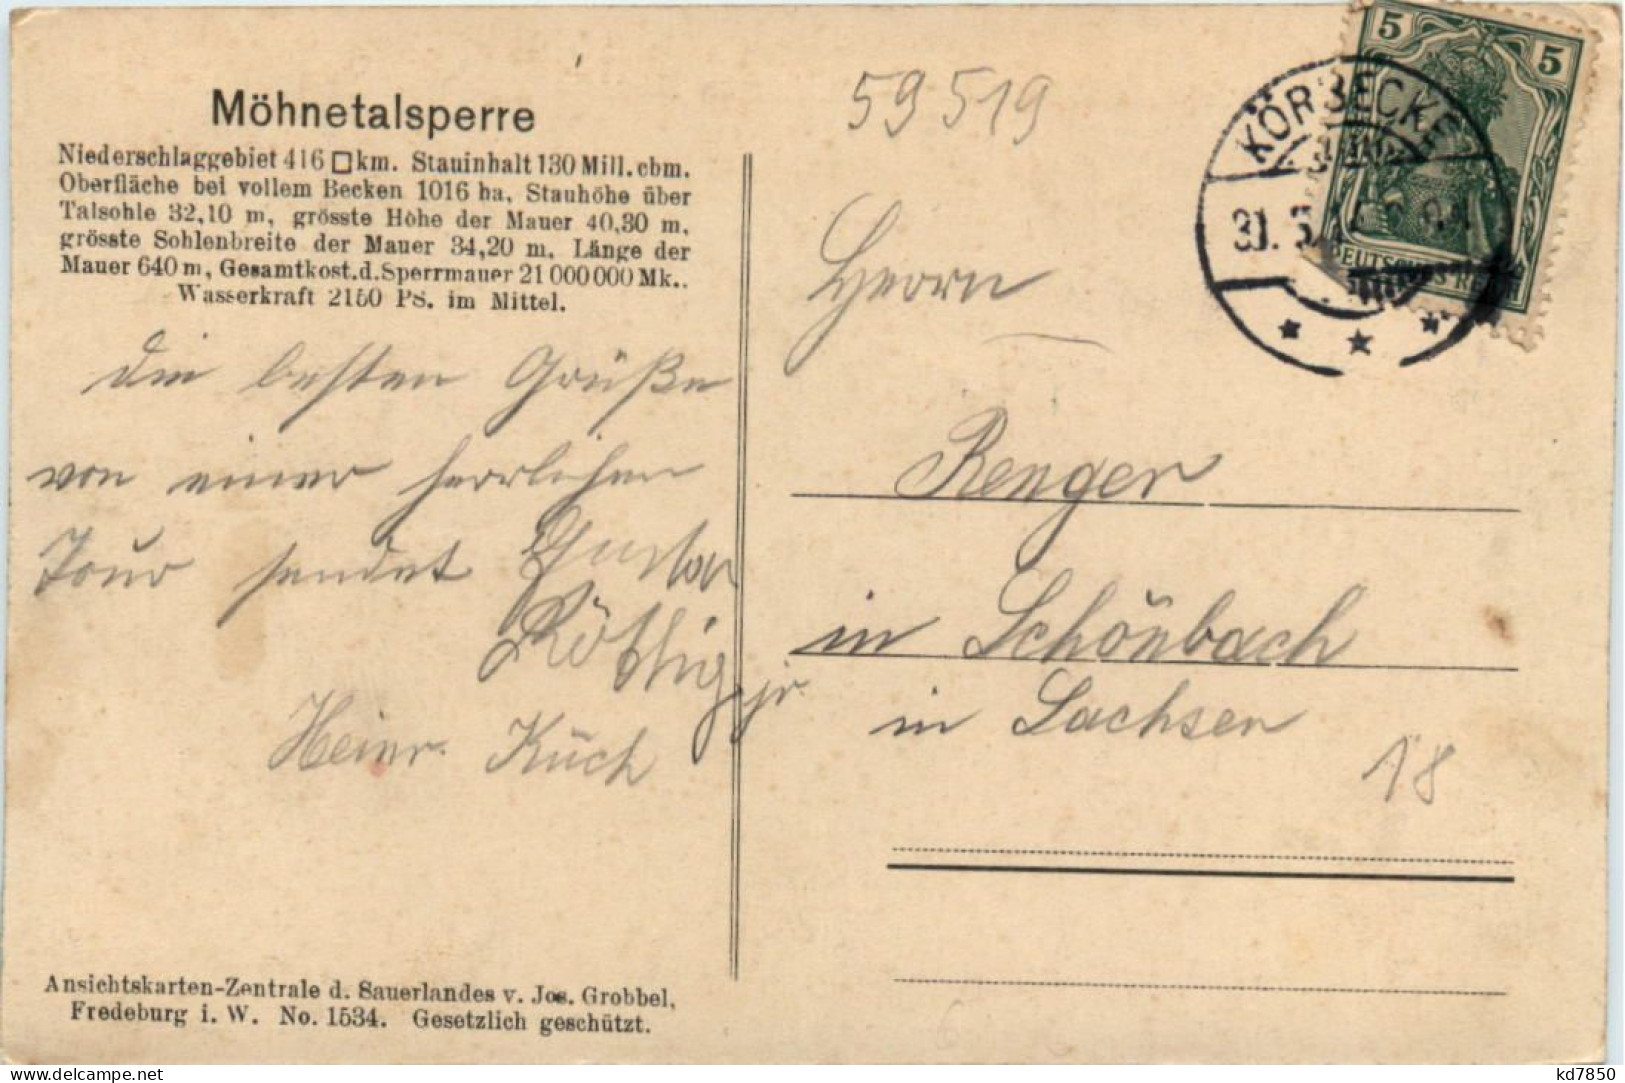 Möhnetalsperre
Niederschlaggebiet 416 □km. Stauinhalt 130 Mill. cbm.
Oberfläche bei vollem Becken 1016 ha. Stauhöhe über
Talsohle 32,10 m, grösste Höhe der Mauer 40,30 m,
grösste Sohlenbreite der Mauer 34,20 m. Länge der
Mauer 640 m, Gesamtkost. d. Sperrmauer 21 000 000 Mk..
Wasserkraft 2150 PS. im Mittel.
Die besten Grüße
von einer herrlichen
Tour sendet Gustav
Röttig jr.
Heinr. Küch
Ansichtskarten-Zentrale d. Sauerlandes v. Jos. Grobbel,
Fredeburg i. W. No. 1534. Gesetzlich geschützt.
59519
5 5
DEUTSCHES REICH
KÖRBECKE
31.
Herrn
Renger
in Schönbach
in Sachsen
18
delcampe.net
kd7850